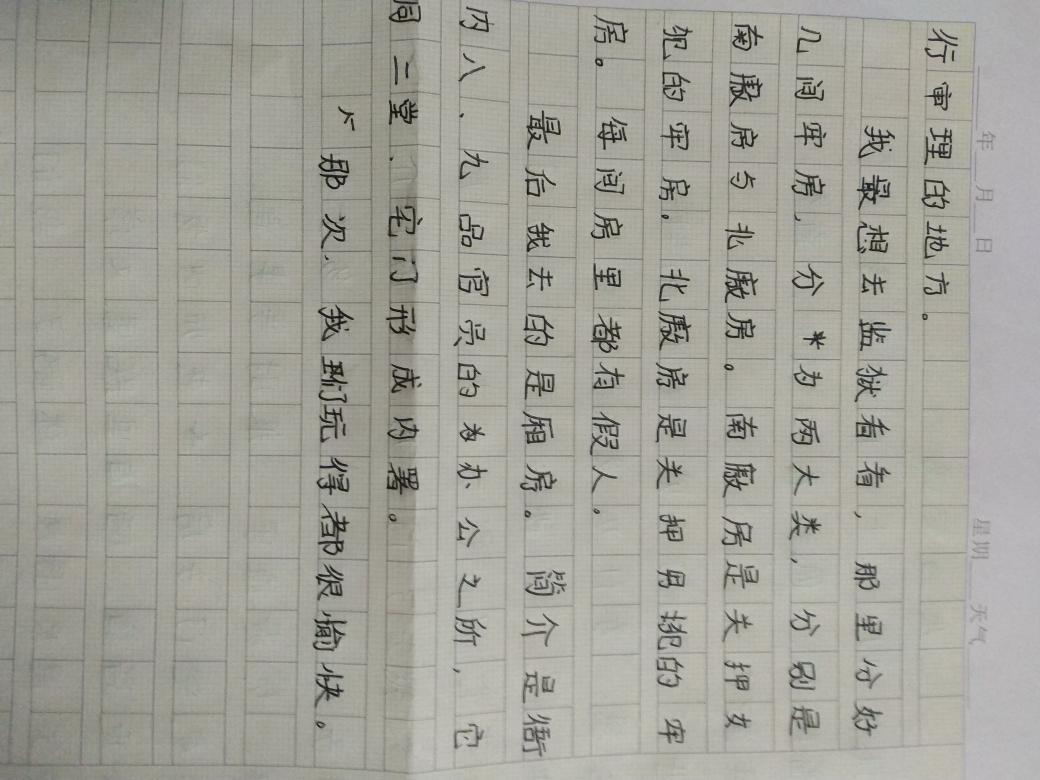 年 月 日 星期 天气
行审理的地方。
我最想去监狱看看，那里分好
几间牢房，分为两大类，分别是
南廒房与北廒房。南廒房是关押女
犯的牢房。北廒房是关押男犯的牢
房。每间房里都有假人。
最后我去的是厢房。简介是衙
内八、九品官员的办公之所，它
同二堂、宅门形成内署。
那次，我们玩得都很愉快。